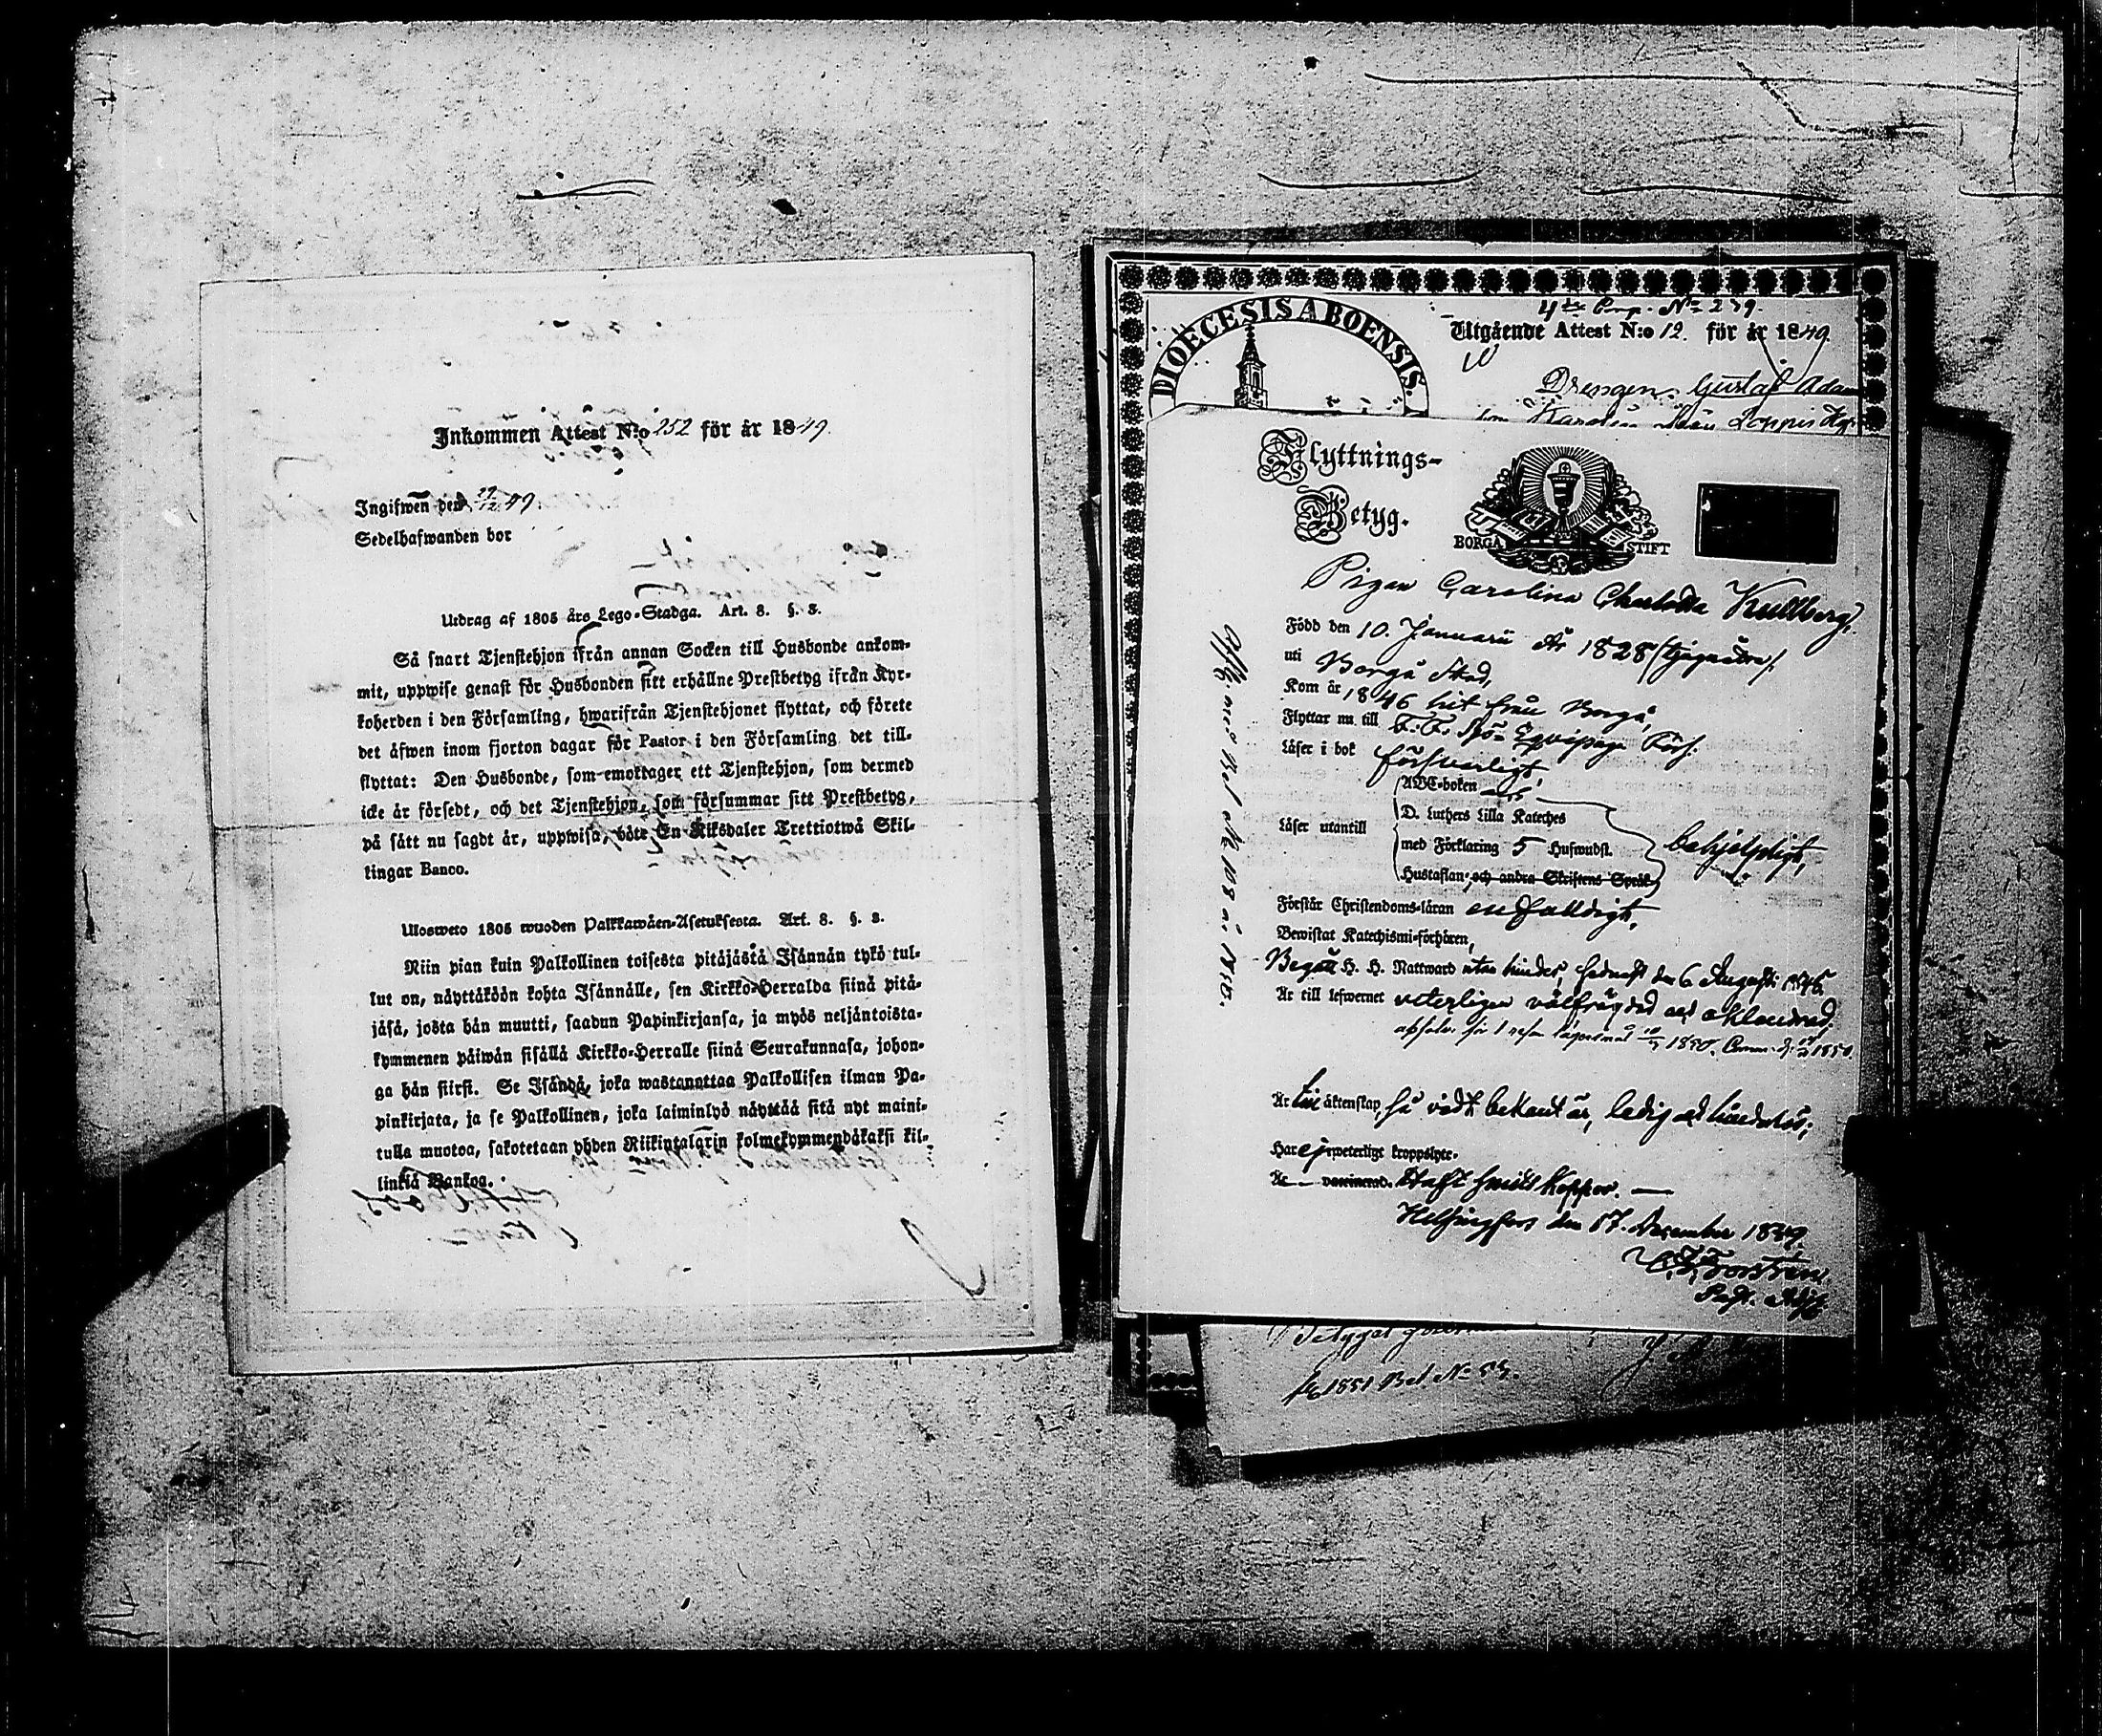 Inkommen Attest N:o 252 för år 1849.
Ingifwen den 27/12 49.
Sedelhafwanden bor
Utdrag af 1805 års Lego-Stadga. Art. 8. §. 8.
Så snart Tjenstehjon ifrån annan Socken till Husbonde ankom-
mit, uppwise genast för Husbonden sitt erhållne Prestbetyg ifrån Kyr-
koherden i den Församling, hwarifrån Tjenstehjonet flyttat, och förete
det äfwen inom fjorton dagar för Pastor i den Församling det till-
flyttat: Den Husbonde, som emottager ett Tjenstehjon, som dermed
icke är försedt, och det Tjenstehjon, som försummar sitt Prestbetyg,
på sätt nu sagdt är, uppwisa, böte En Riksdaler Trettiotwå Skil-
lingar Banco.
Ulosweto 1805 wuoden Palkkawäen-Asetuksesta. Art. 8. §. 8.
Niin pian kuin Palkollinen toisesta pitäjästä Isännän tykö tul-
lut on, näyttäköön kohta Isännälle, sen Kirkko-Herralda siinä pitä-
jäsä, josta hän muutti, saadun Papinkirjansa, ja myös neljäntoista-
kymmenen päiwän sisällä Kirkko-Herralle siinä Seurakunnasa, johon-
ga hän siirsi. Se Isändä, joka wastanottaa Palkollisen ilman Pa-
pinkirjata, ja se Palkollinen, joka laiminlyö näyttää sitä nyt maini-
tulla muotoa, sakotetaan yhden Riikintalarin kolmekymmendäkaksi kil-
linkiä Bankoa.
DIOECESIS ABOENSIS.
4de Qmp. No 279.
Utgående Attest N:o 12. för år 1849.
Drengen Gustaf Adam
Flyttnings-
Betyg.
BORGÅ STIFT
Pigan Carolina Charlotta Kullberg,
Född den 10. Januarii År 1828
uti Borgå Stad,
Kom år 1846 hit från Borgå,
Flyttar nu till F. F. Sjö-Equipage Förs.
Läser i bok försvarligt,
ABC-boken
D. Luthers Lilla Kateches
Läser utantill
med Förklaring 5 Hufwudst.
behjelpligt,
Hustaflan och andra Skriftens Språk
Förstår Christendoms-läran enfaldigt,
Bewistat Katechismi-förhören,
Begått H. H. Nattward utan hinder, sednast den 6 Augusti 1848.
Är till lefwernet veterligen välfrägdad och oklandrad,
Är till äktenskap, så vidt bekant är, ledig och hinderlös;
Har ej weterligt kroppslyte.
Är vaccinerad. Haft smittkoppor.
Helsingfors den 17. December 1849.
Past. Adj.
1851 Bet No